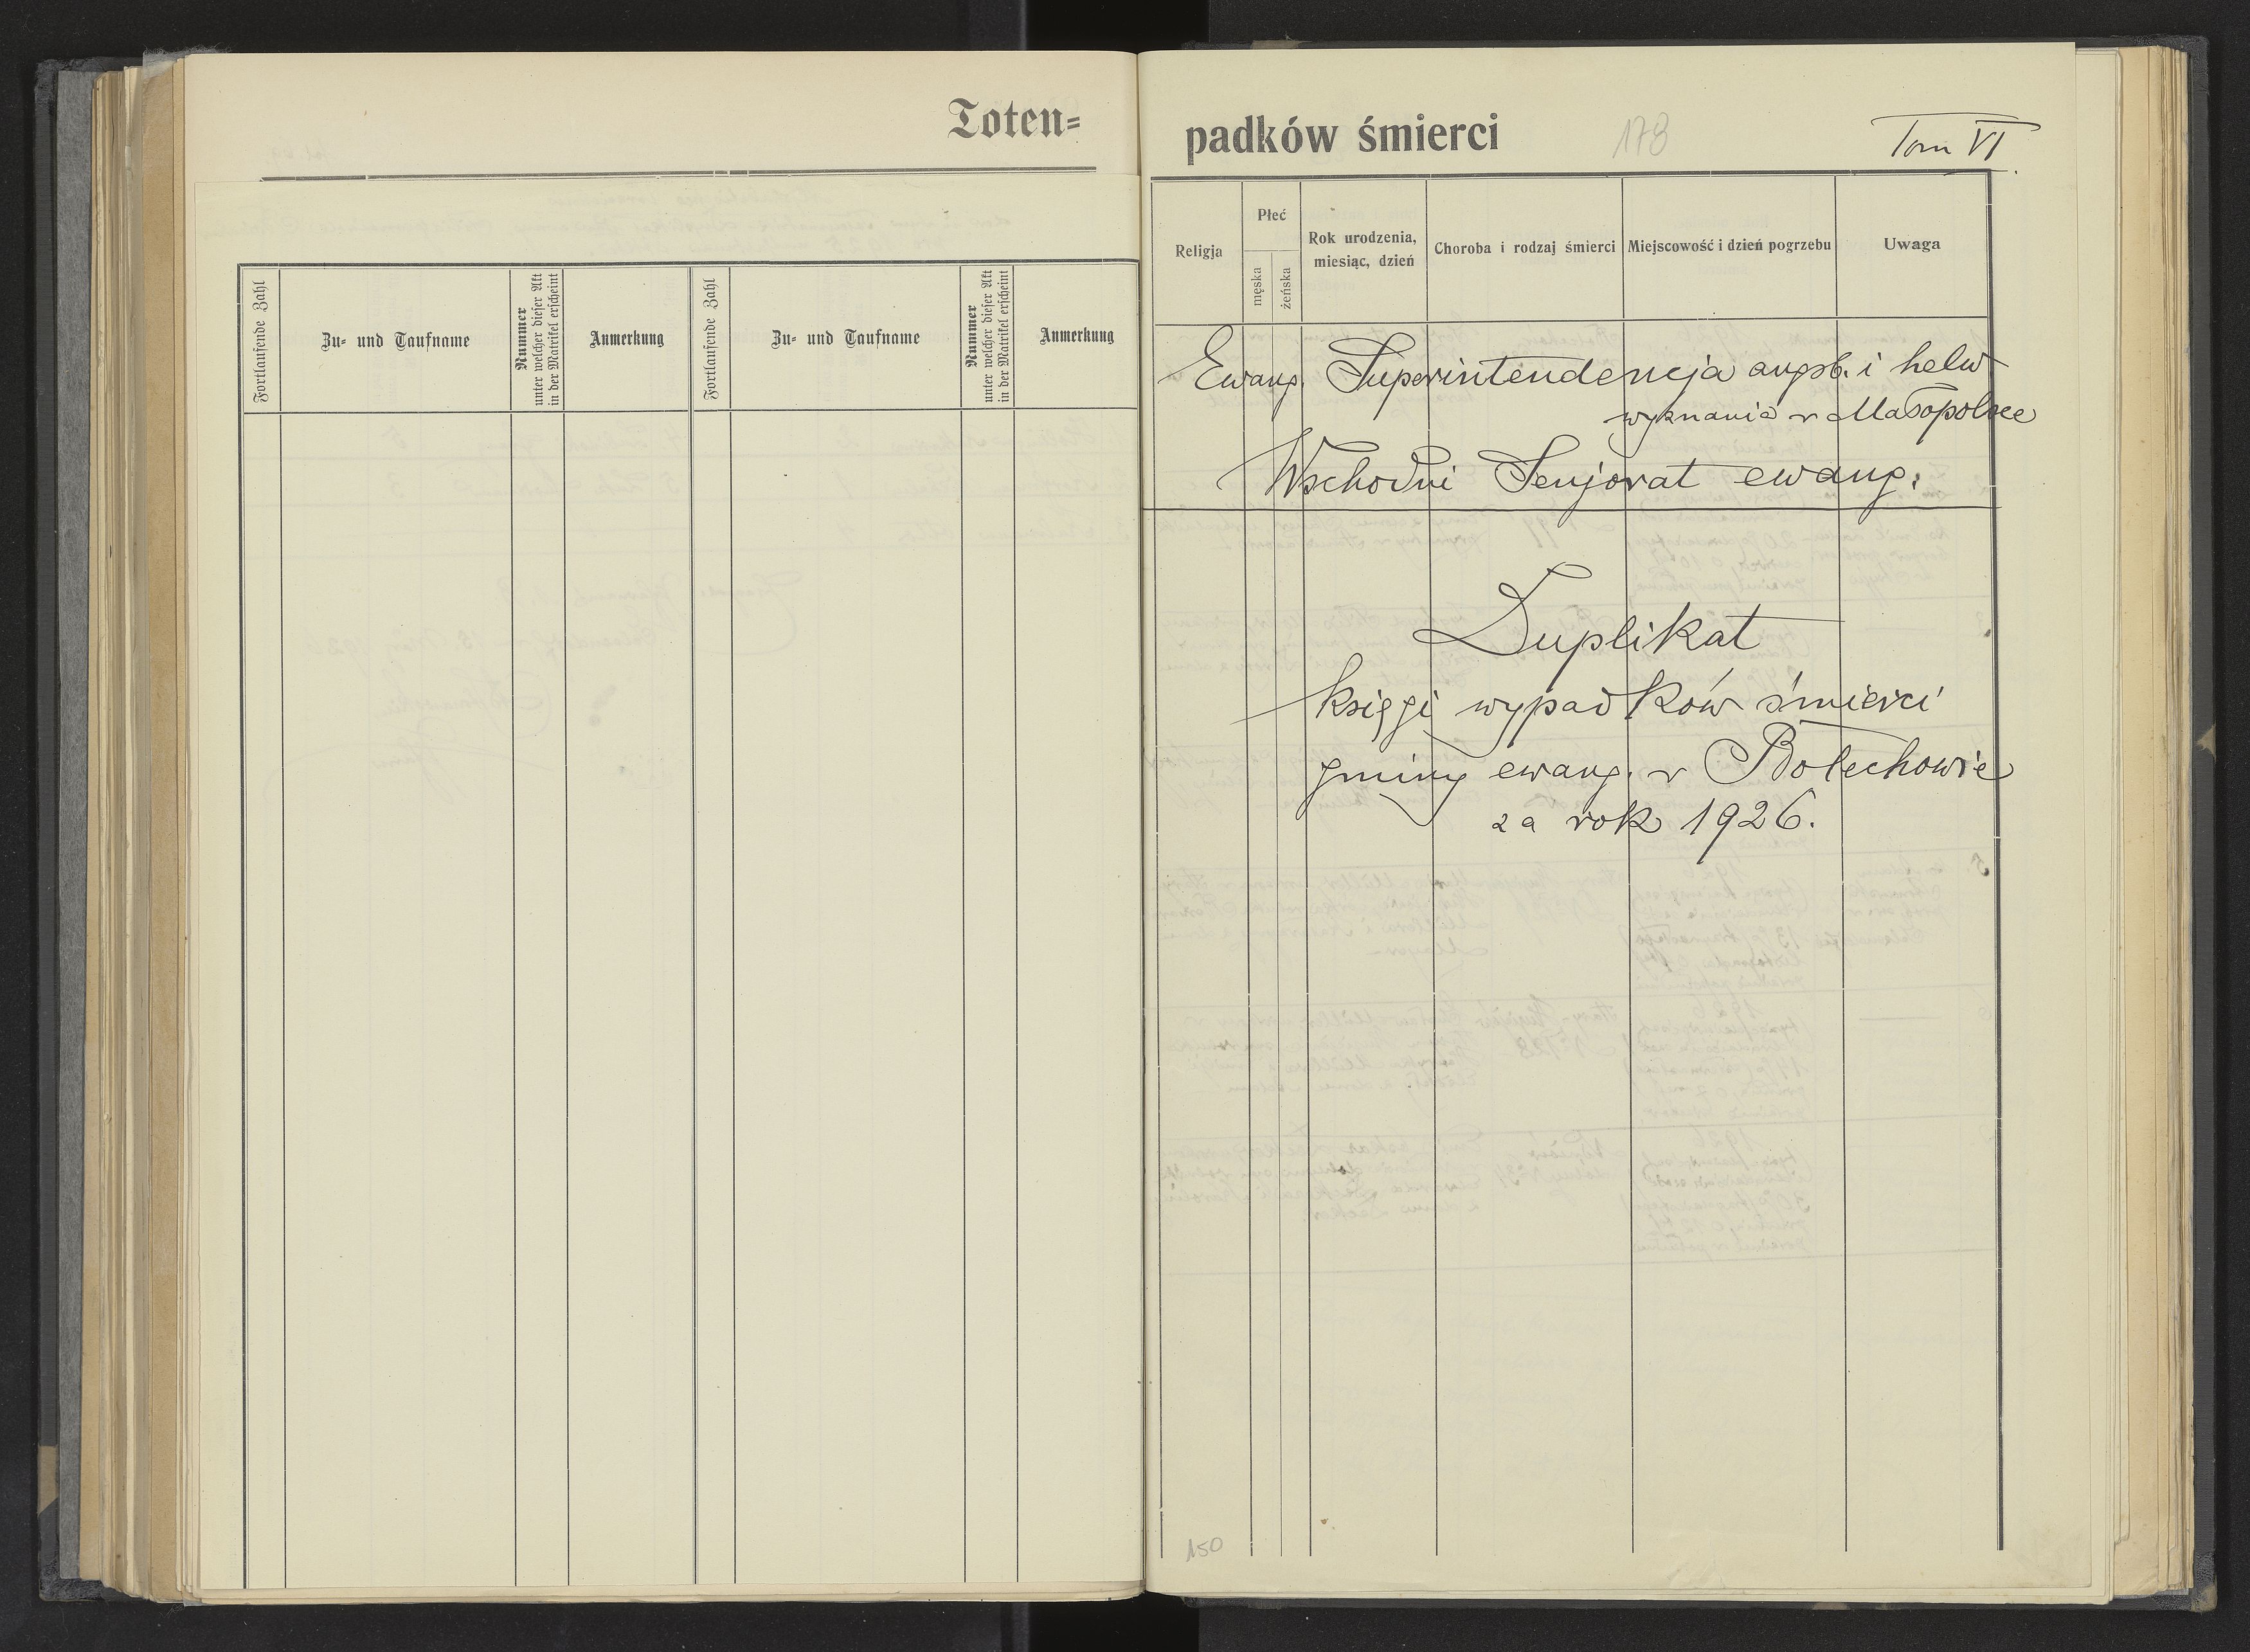 Toten=
Fortlaufende Zahl
Zu- und Taufname
Nummer
unter welcher dieser Akt
in der Matrikel erscheint
Anmerkung
Fortlaufende Zahl
Zu- und Taufname
Nummer
unter welcher dieser Akt
in der Matrikel erscheint
Anmerkung
padków śmierci
178
Tom VI.
Religja
Płeć
męska
żeńska
Rok urodzenia,
miesiąc, dzień
Choroba i rodzaj śmierci
Miejscowość i dzień pogrzebu
Uwaga
Ewang. Superintendencja augsb. i helw
wyznania w Małopolsce
Wschodni Senjorat ewang.
Duplikat
księgi wypadków śmierci
gminy ewang. w Bolechowie
za rok 1926.
150